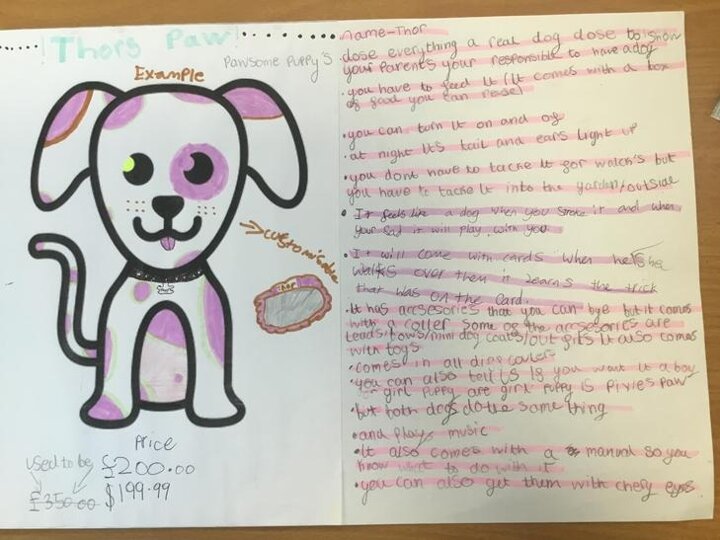 Thors Paw
Pawsome Puppy's
Example
customisable
Thor
Price
used to be
£200.00
£350.00
$199.99
Name-Thor
dose everything a real dog dose to show
your parents your responsible to have a dog
• you have to feed it (It comes with a box
of food you can reuse)
• you can turn it on and of
• at night its tail and ears light up
• you dont have to tacke it for walck's but
you have to tacke it into the garden/outside
• It feels like a dog when you stroke it and when
your sad it will play with you
• It will come with cards when he/she
walks over them it learns the trick
that was on the card.
• It has arcsesories that you can bye but it comes
with a coller some of the arcsesories are
leads, bows/mini dog coats/out fits it also comes
with toys
• comes in all diffrent
• you can also tell us if you want it a boy
or girl puppy are girl puppy is pixies paw
• but both dogs do the same thing
• and plays music
• It also comes with a manual so you
know what to do with it
• you can also get them with eyes